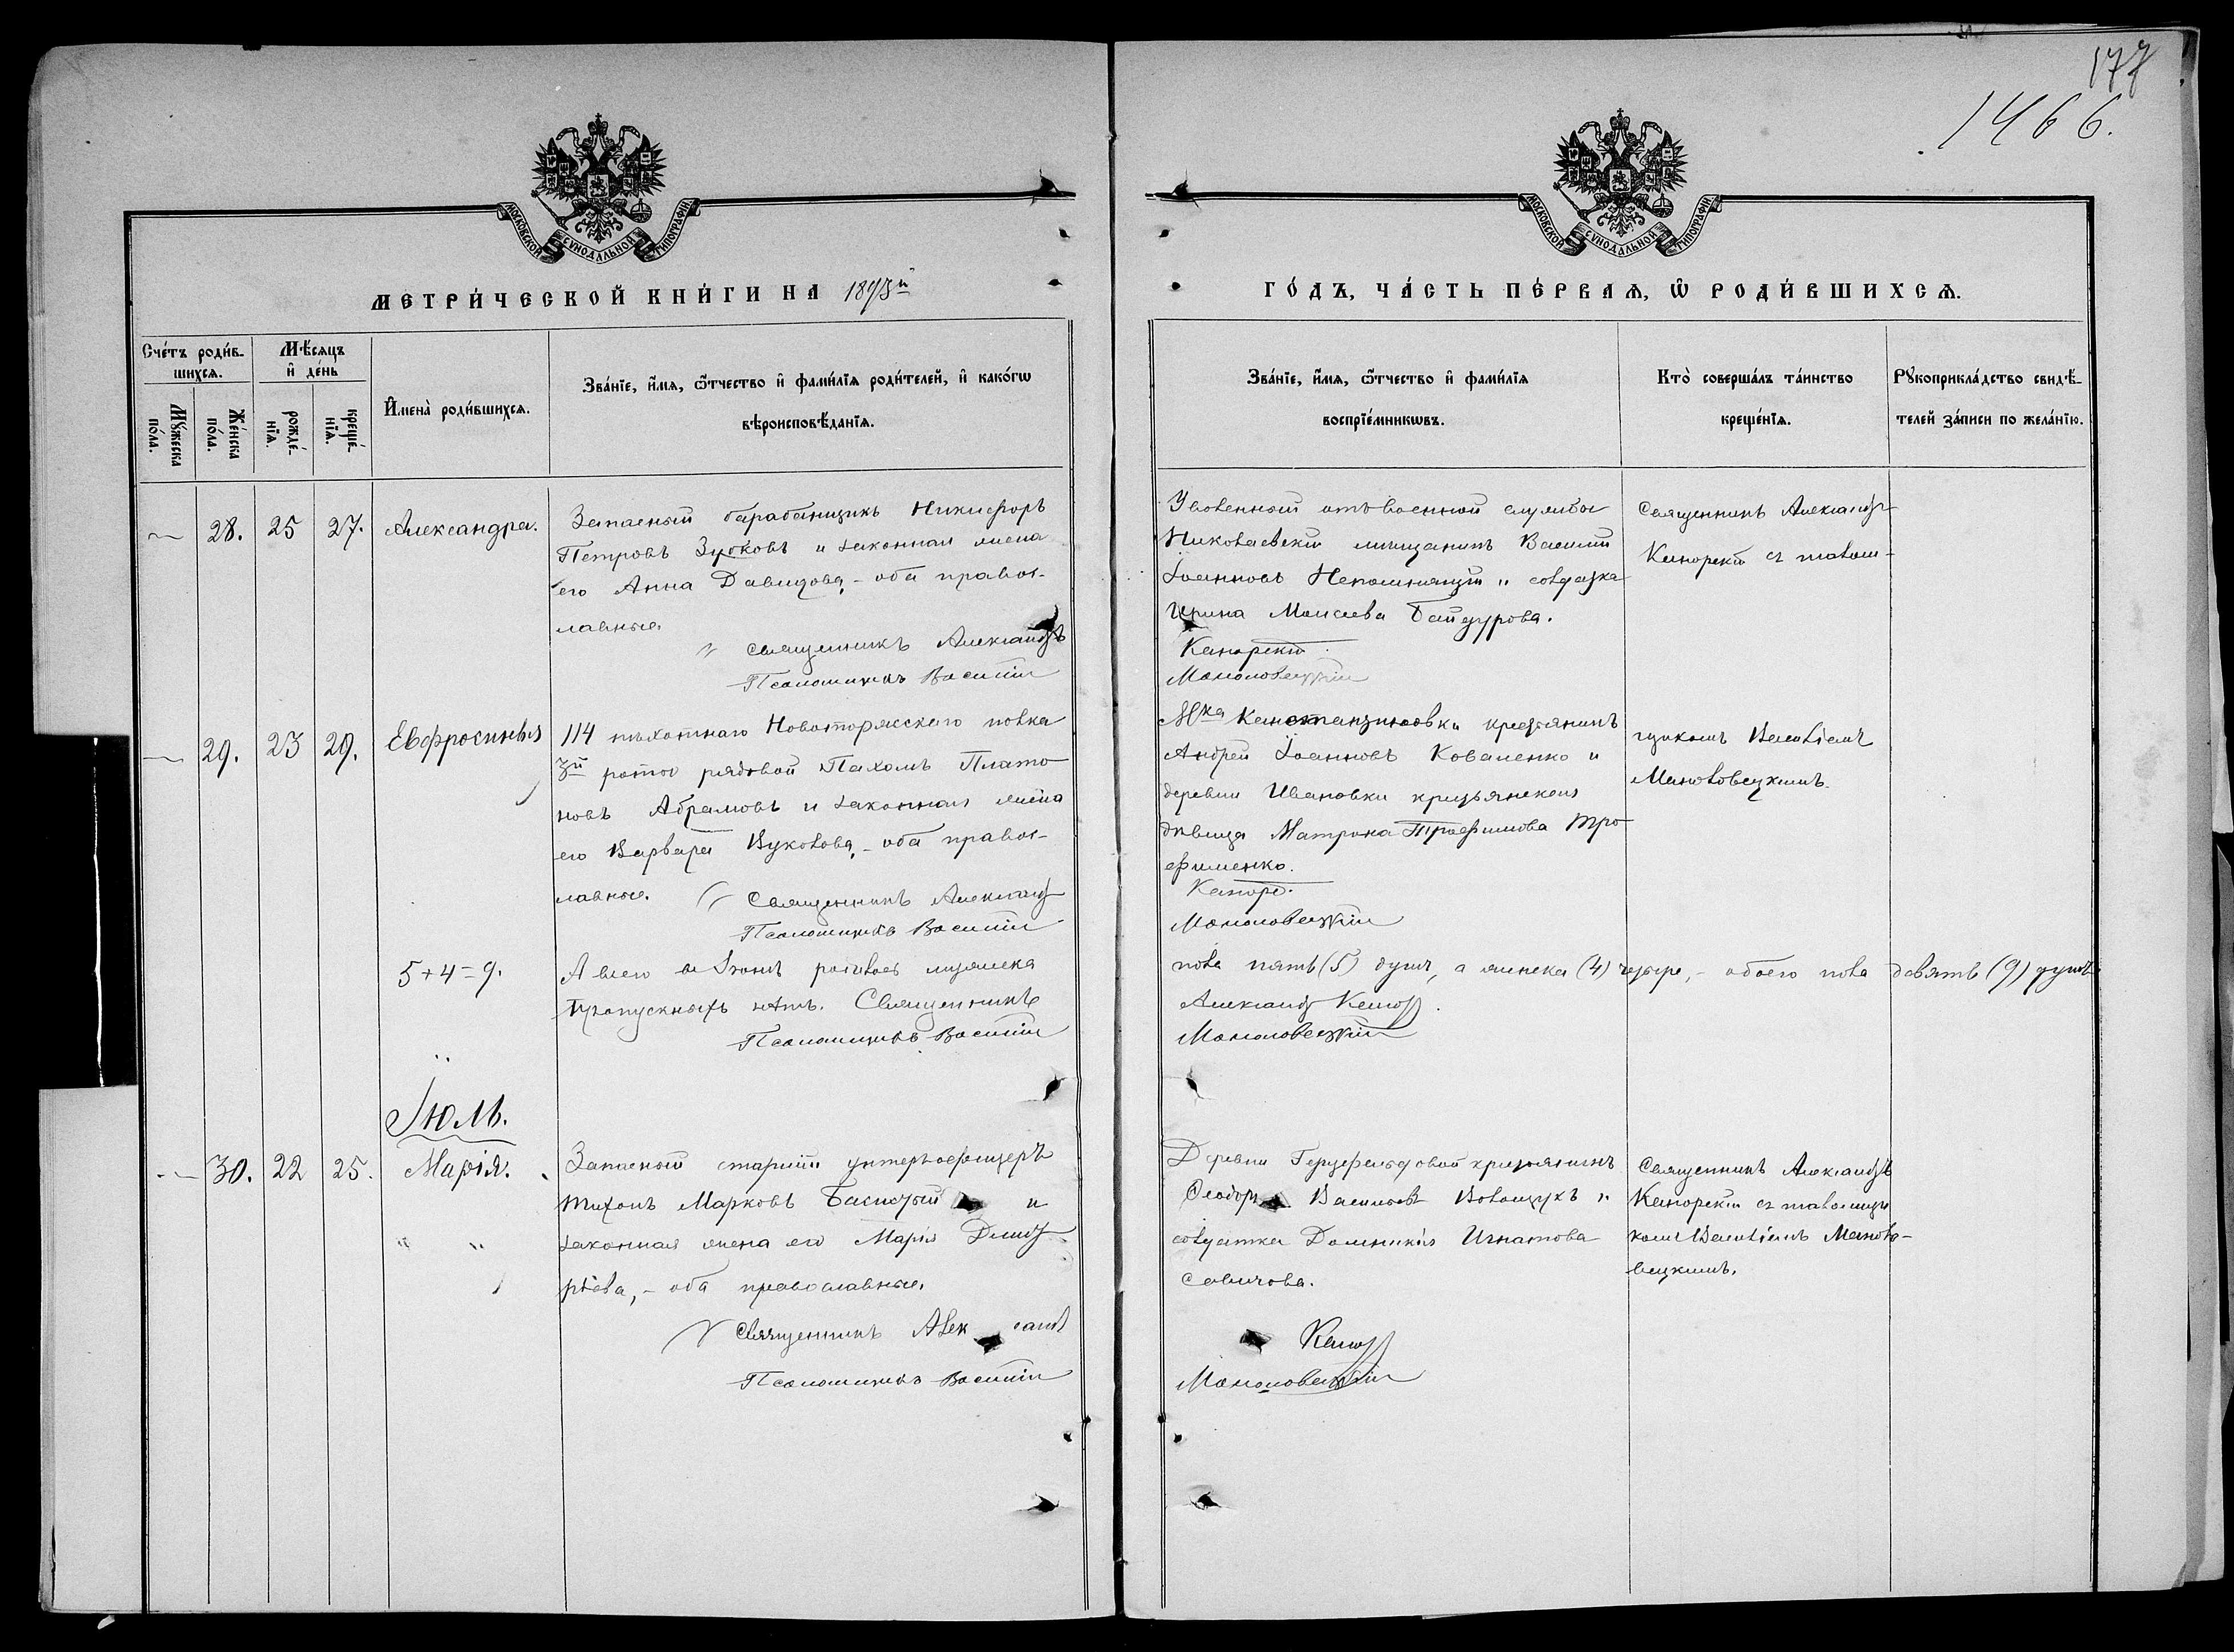 177
1466.
МОСКОВСКОЙ СѴНОДАЛЬНОЙ ТИПОГРАФІИ
МОСКОВСКОЙ СѴНОДАЛЬНОЙ ТИПОГРАФІИ
МЕТРИ́ЧЕСКОЙ КНИ́ГИ НА 1893й
ГО́ДЪ, ЧА́СТЬ ПЕ́РВАѦ, Ѡ҆ РОДИ́ВШИХСѦ.
Сче́тъ роди́в-
шихсѧ.
Мꙋ́жеска по́ла.
Же́нска по́ла.
Мѣ́сѧцъ и҆ де́нь
рожде́-нїѧ.
креще́-нїѧ.
И҆мена̀ роди́вшихсѧ.
Зва́нїе, и҆́мѧ, ѻ҆́тчество и҆ фами́лїѧ роди́телей, и҆ како́гѡ
вѣроисповѣ́данїѧ.
Зва́нїе, и҆́мѧ, ѻ҆́тчество и҆ фами́лїѧ
воспрїе́мникѡвъ.
Кто̀ соверша́лъ та́инство
креще́нїѧ.
Рꙋкоприкла́дство свидѣ́-
телей за́писи по жела́нїю.
28. 25 27. Александра.
Запасный барабанщикъ Никифоръ
Петровъ Зубковъ и законная жена
его Анна Давидова, - оба правос-
лавные.
Священникъ Александръ
Псаломщикъ Василій
Уволенный отъ военной службы
Николаевскій мѣщанинъ Василій
Іоанновъ Непомнящій и солдатка
Ирина Моисеева Байдурова.
Канорскій
Маньковецкій
Священникъ Александръ
Канорскій съ псалом-
29. 23 29. Евфросинія
114 пѣхотнаго Новоторжскаго полка
3й роты рядовой Пахомъ Плато-
новъ Абрамовъ и законная жена
его Варвара Вуколова, - оба правос-
лавные.
Священникъ Александръ
Псаломщикъ Василій
М-ка Константиновки крестьянинъ
Андрей Іоанновъ Коваленко и
деревни Ивановки крестьянская
дѣвица Матрона Трофимова Тро-
фименко.
Канорс.
Маньковецкій
щикомъ Василіемъ
Маньковецкимъ.
5+4=9.
А всего въ Іюнѣ родилось мужеска
пола пять (5) душъ, а женска (4) четыре, - обоего пола девять (9) душъ
Пропускныхъ нѣтъ. Священникъ
Александръ Канор
Псаломщикъ Василій
Маньковецкій
Іюль.
30. 22 25. Марія.
Запасный старшій унтеръ-офицеръ
Тихонъ Марковъ и
законная жена его Марія Димит-
ріева, - оба православные.
Священникъ Александръ
Псаломщикъ Василій
Деревни крестьянинъ
Ѳеодоръ Васильевъ и
солдатка Домникія Игнатова
Савичова.
Канор
Маньковецкій
Священникъ Александръ
Канорскій съ псаломщи-
комъ Василіемъ Манько-
вецкимъ.